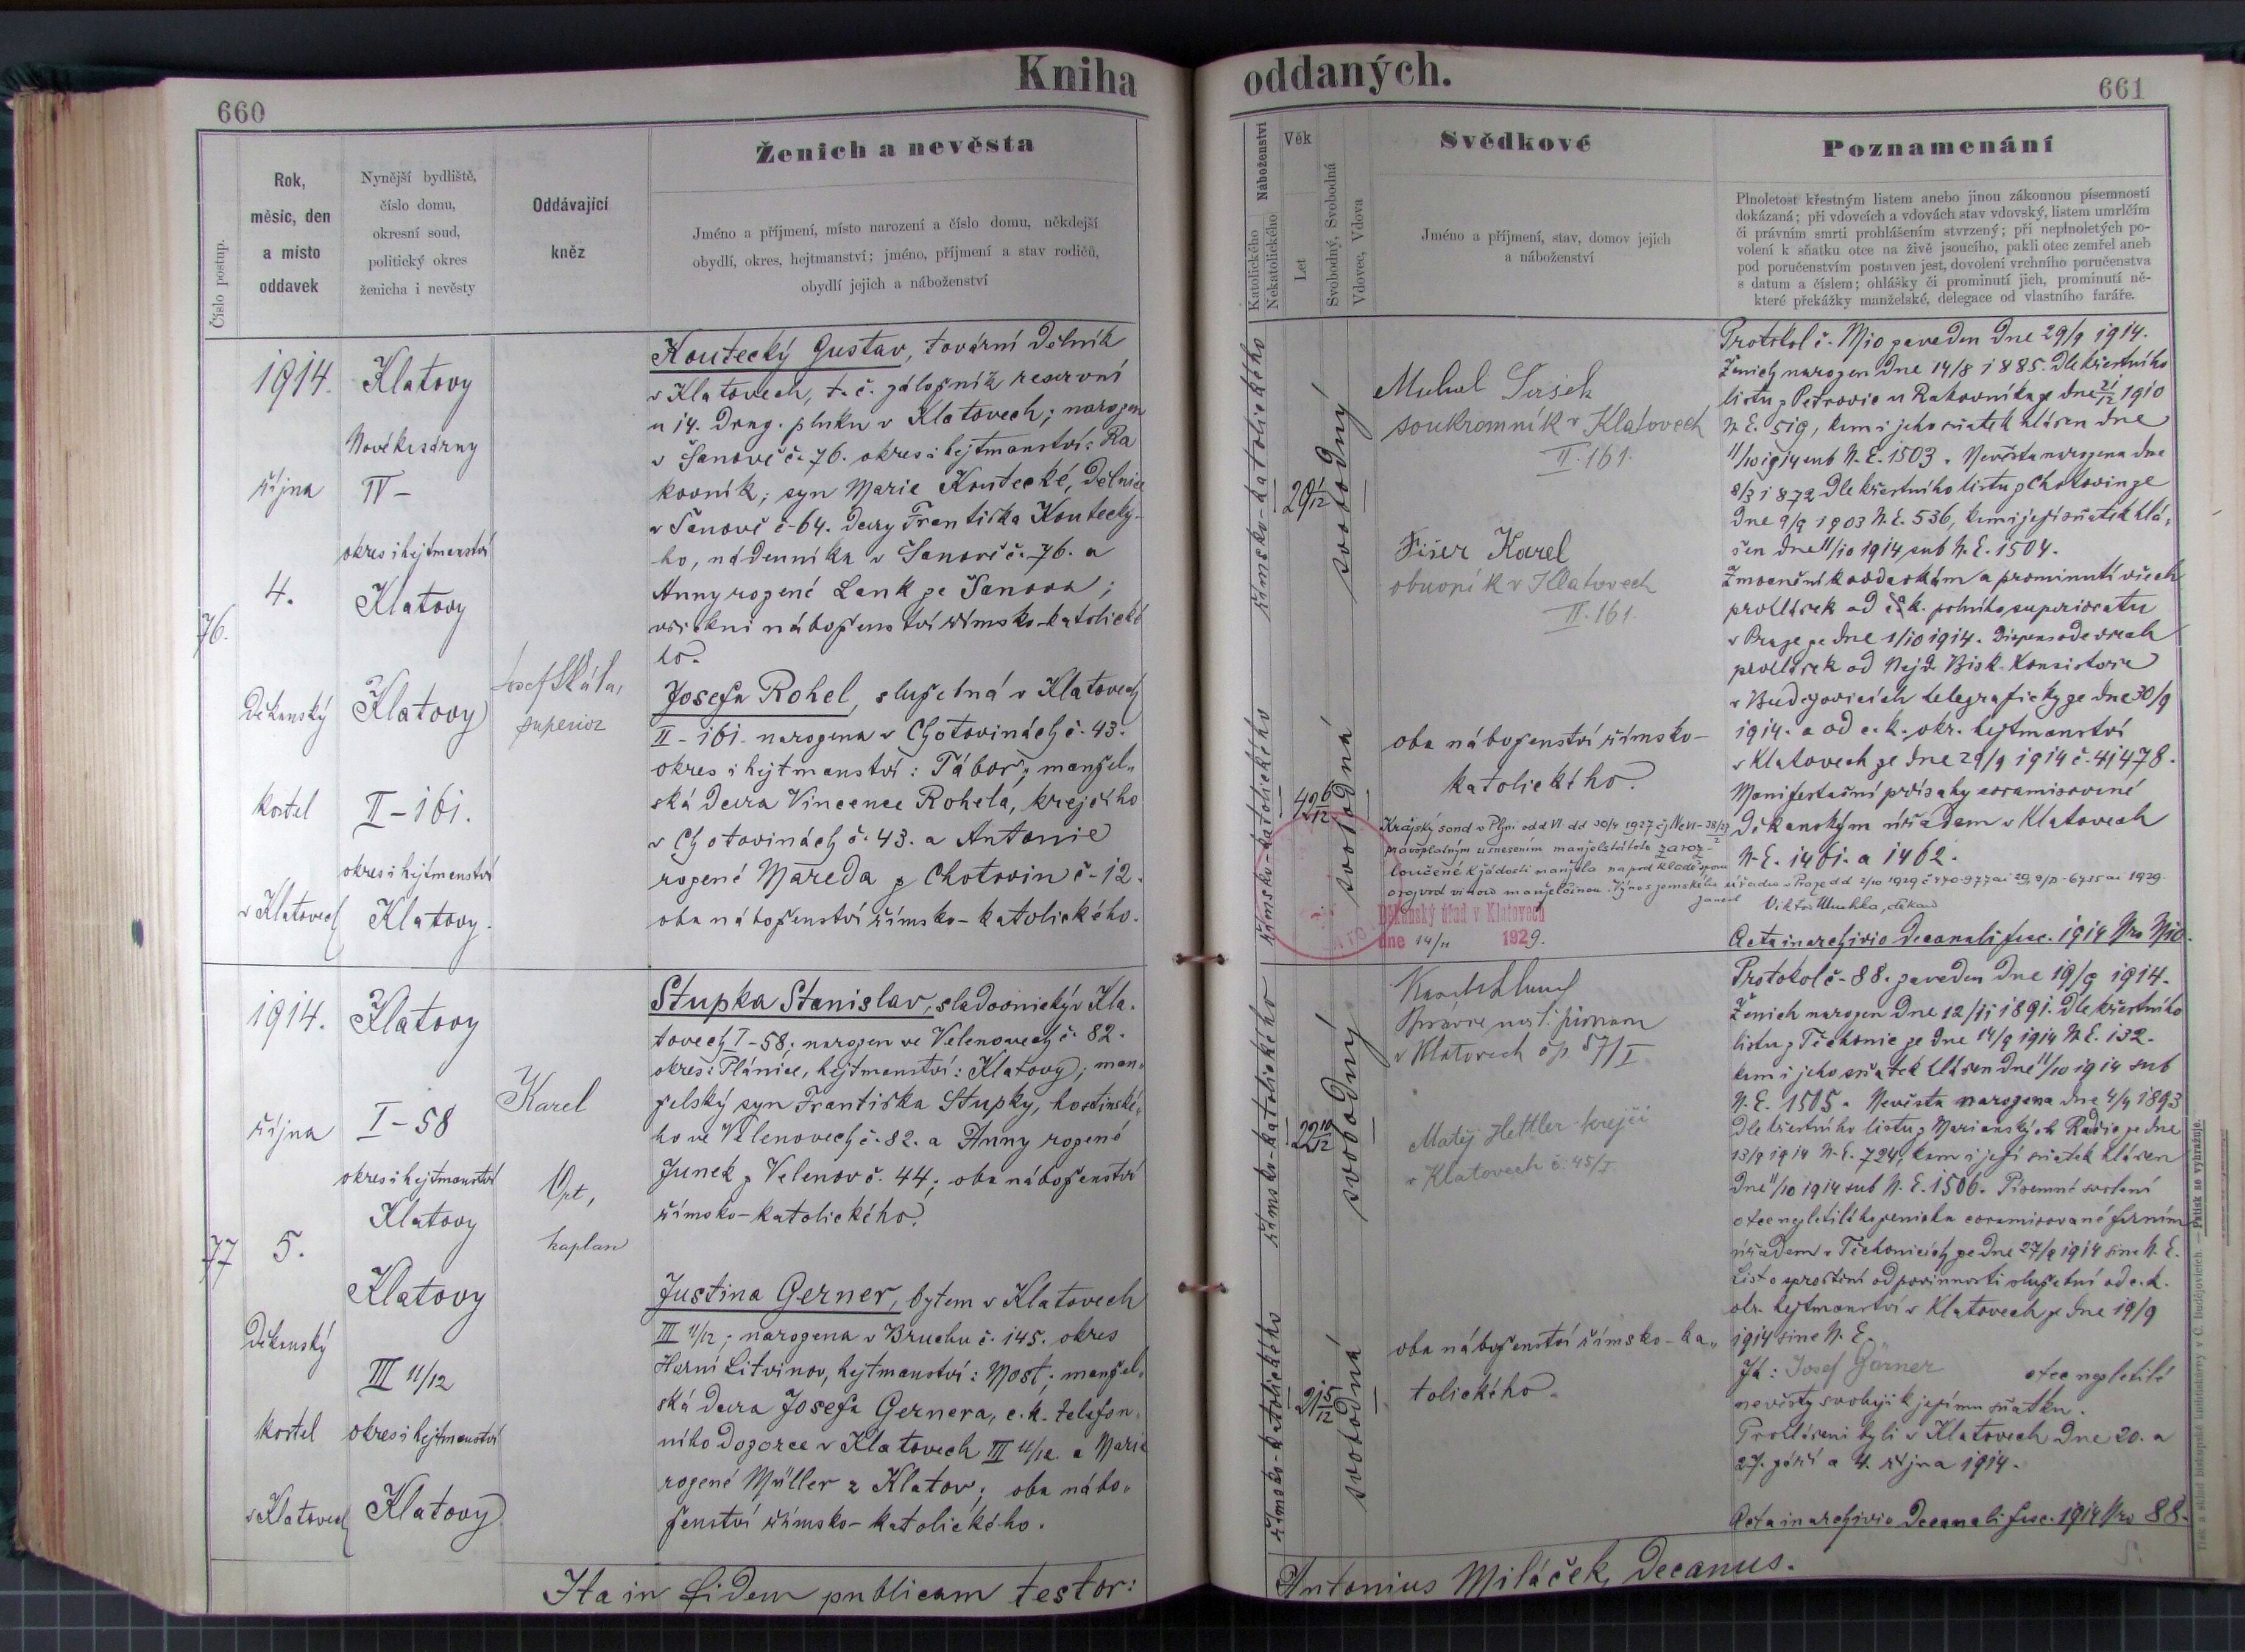 Kniha oddaných.
660
661
Číslo postup.
Rok,
měsíc, den
a místo
oddavek
Nynější bydliště,
číslo domu,
okresní soud,
politický okres
ženicha i nevěsty
Oddávající
kněz
Ženich a nevěsta
Jméno a příjmení, místo narození a číslo domu, někdejší
obydlí, okres, hejtmanství; jméno, příjmení a stav rodičů,
obydlí jejich a náboženství
Náboženství
Katolického
Nekatolického
Věk
Let
Svobodný, Svobodná
Vdovec, Vdova
Svědkové
Jméno a příjmení, stav, domov jejich
a náboženství
Poznamenání
Plnoletost křestným listem anebo jinou zákonnou písemností
dokázaná; při vdovcích a vdovách stav vdovský, listem umrlčím
či právním smrti prohlášením stvrzený; při neplnoletých po-
volení k sňatku otce na živě jsoucího, pakli otec zemřel aneb
pod poručenstvím postaven jest, dovolení vrchního poručenstva
s datum a číslem; ohlášky či prominutí jich, prominutí ně-
které překážky manželské, delegace od vlastního faráře.
76.
1914.
října
4.
Děkanský
kostel
v Klatovech
Klatovy
Nové kasárny
IV –
okres i hejtmanství
Klatovy
Klatovy
II – 161.
okres i hejtmanství
Klatovy.
Josef Skála,
superior
Koutecký Gustav, tovární dělník
v Klatovech, t. č. záložník reservní
u 14. Drag. pluku v Klatovech; narozen
v Šanově č. 76. okres i hejtmanství: Ra
kovník; syn Marie Koutecké, dělnice
v Šanově č. 64. dcery Františka Koutecký-
ho, nádenníka v Šanově č. 76. a
Anny rozené Lank ze Šanova;
všickni náboženství římsko-katolické
ho.
Josefa Rohel, služebná v Klatovech
II – 161. narozena v Chotovinách č. 43.
okres i hejtmanství: Tábor; manžel„
ská dcera Vincence Rohela, krejčího
v Chotovinách č. 43. a Antonie
rozené Mareda z Chotovin č. 12.
oba náboženství římsko-katolického.
římsko-katolického
římsko-katolického
29 1/12
42 6/12
svobodný
svobodná
soukromník v Klatovech
II. 161.
Fišer Karel
obuvník v Klatovech
II. 161.
oba náboženství římsko-
katolického.
Děkanský úřad v Klatovech
dne 14/11 1929.
Protokol č. zaveden dne 29/9 1914.
Ženich narozen dne 14/8 1885. Dle křestního
listu z Petrovic u Rakovníka ze dne 21/12 1910
N. E. 519, kam i jeho sňatek hlášen dne
11/10 1914 sub N. E. 1503. Nevěsta narozena dne
8/3 1872 Dle křestního listu z Chotovin ze
dne 9/9 1903 N. E. 536, kam i její sňatek hlá„
šen dne 11/10 1914 sub N. E. 1504.
Zmocnění k oddavkám a prominutí všech
prohlášek od c. k. polního superiorátu
v Praze ze dne 1/10 1914. Dispens ode všech
prohlášek od Nejd. Bisk. Konsistoře
v Budějovicích telegraficky ze dne 30/9
1914. a od c. k. okr. hejtmanství
v Klatovech ze dne 29/9 1914 č. 41478.
Manifestační přísahy coramisované
Děkanským úřadem v Klatovech
N. E. 1461. a 1462.
Krajský soud v Plzni odd VI. dd 30/4 1927 čj Nc VI – 38/27
pravoplatným usnesením manželství toto za roz-
loučené k žádosti manžela
Acta in archivio decanali fasc. 1914 Nro
77
1914.
října
5.
Děkanský
kostel
v Klatovech
Klatovy
I – 58
okres i hejtmanství
Klatovy
Klatovy
III 11/12
okres i hejtmanství
Klatovy
Karel
Opt,
kaplan
Stupka Stanislav, sladovnický v Kla.
tovech I – 58; narozen ve Velenovech č. 82.
okres: Plánice, hejtmanství: Klatovy; man„
želský syn Františka Stupky, hostinské„
ho ve Velenovech č. 82. a Anny rozené
Junek z Velenov č. 44; oba náboženství
římsko-katolického.
Justina Gerner, bytem v Klatovech
III 11/12; narozena v Bruchu č. 145. okres
Horní Litvínov, hejtmanství: Most; manžel„
ská dcera Josefa Gernera, c. k. telefon„
ního dozorce v Klatovech III 11/12. a Marie
rozené Müller z Klatov; oba nábo„
ženství římsko-katolického.
římsko-katolického
římsko-katolického
22 10/12
21 5/12
svobodný
svobodná
v Klatovech čp. 57/I
Matěj Hettler krejčí
v Klatovech č. 45/I
oba náboženství římsko-ka„
tolického.
Protokol č. 88. zaveden dne 19/9 1914.
Ženich narozen dne 12/11 1891. Dle křestního
listu z Těchonic ze dne 14/9 1914 N. E. 132.
kam i jeho sňatek hlášen dne 11/10 1914 sub
N. E. 1505. Nevěsta narozena dne 4/4 1893
Dle křestního listu z Mariánských Radčic ze dne
13/9 1914 N. E. 724, kam i její sňatek hlášen
dne 11/10 1914 sub N. E. 1506. Písemné svolení
otce nezletilého ženicha coramisované farním
úřadem v Těchonicích ze dne 27/9 1914 sine N. E.
List o sproštění od povinnosti služební od c. k.
okr. hejtmanství v Klatovech ze dne 19/9
1914 sine N. E.
Já: Josef Görner otec nezletilé
nevěsty svoluji k jejímu sňatku.
Prohlášeni byli v Klatovech dne 20. a
27. září a 4. října 1914.
Acta in archivio decanali fasc. 1914 Nro 88.
Ita in fidem publicam testor:
Antonius Miláček, Decanus.
Tisk a sklad biskupské knihtiskárny v Č. Budějovicích. — Patisk se vyhražuje.